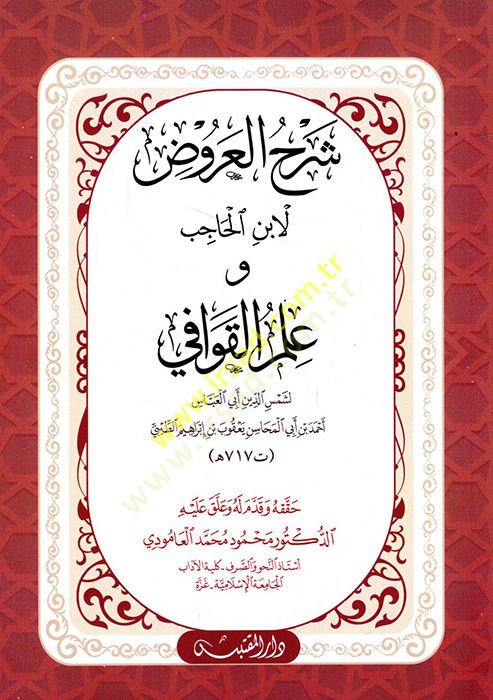 شَرْحُ العَرُوْضِ
لابْنِ الْحَاجِبِ
وَ
عِلْمُ القَوَافِي
لشَمْسِ الدِّينِ أَبِي العَبَّاسِ
أَحْمَدَ بْنِ أَبِي المَحَاسِنِ يَعْقُوبَ بْنِ إِبْرَاهِيمَ الطَّيِّبِيِّ
(ت ٧١٧هـ)
حَقَّقَهُ وَقَدَّمَ لَهُ وَعَلَّقَ عَلَيْهِ
الدُّكْتُور مَحْمُود مُحَمَّد العَامُودِي
أستاذ النَّحو والصَّرف - كلية الآداب
الجَامِعَة الإِسْلَامِيَّة - غَزَّة
دار المقتبس